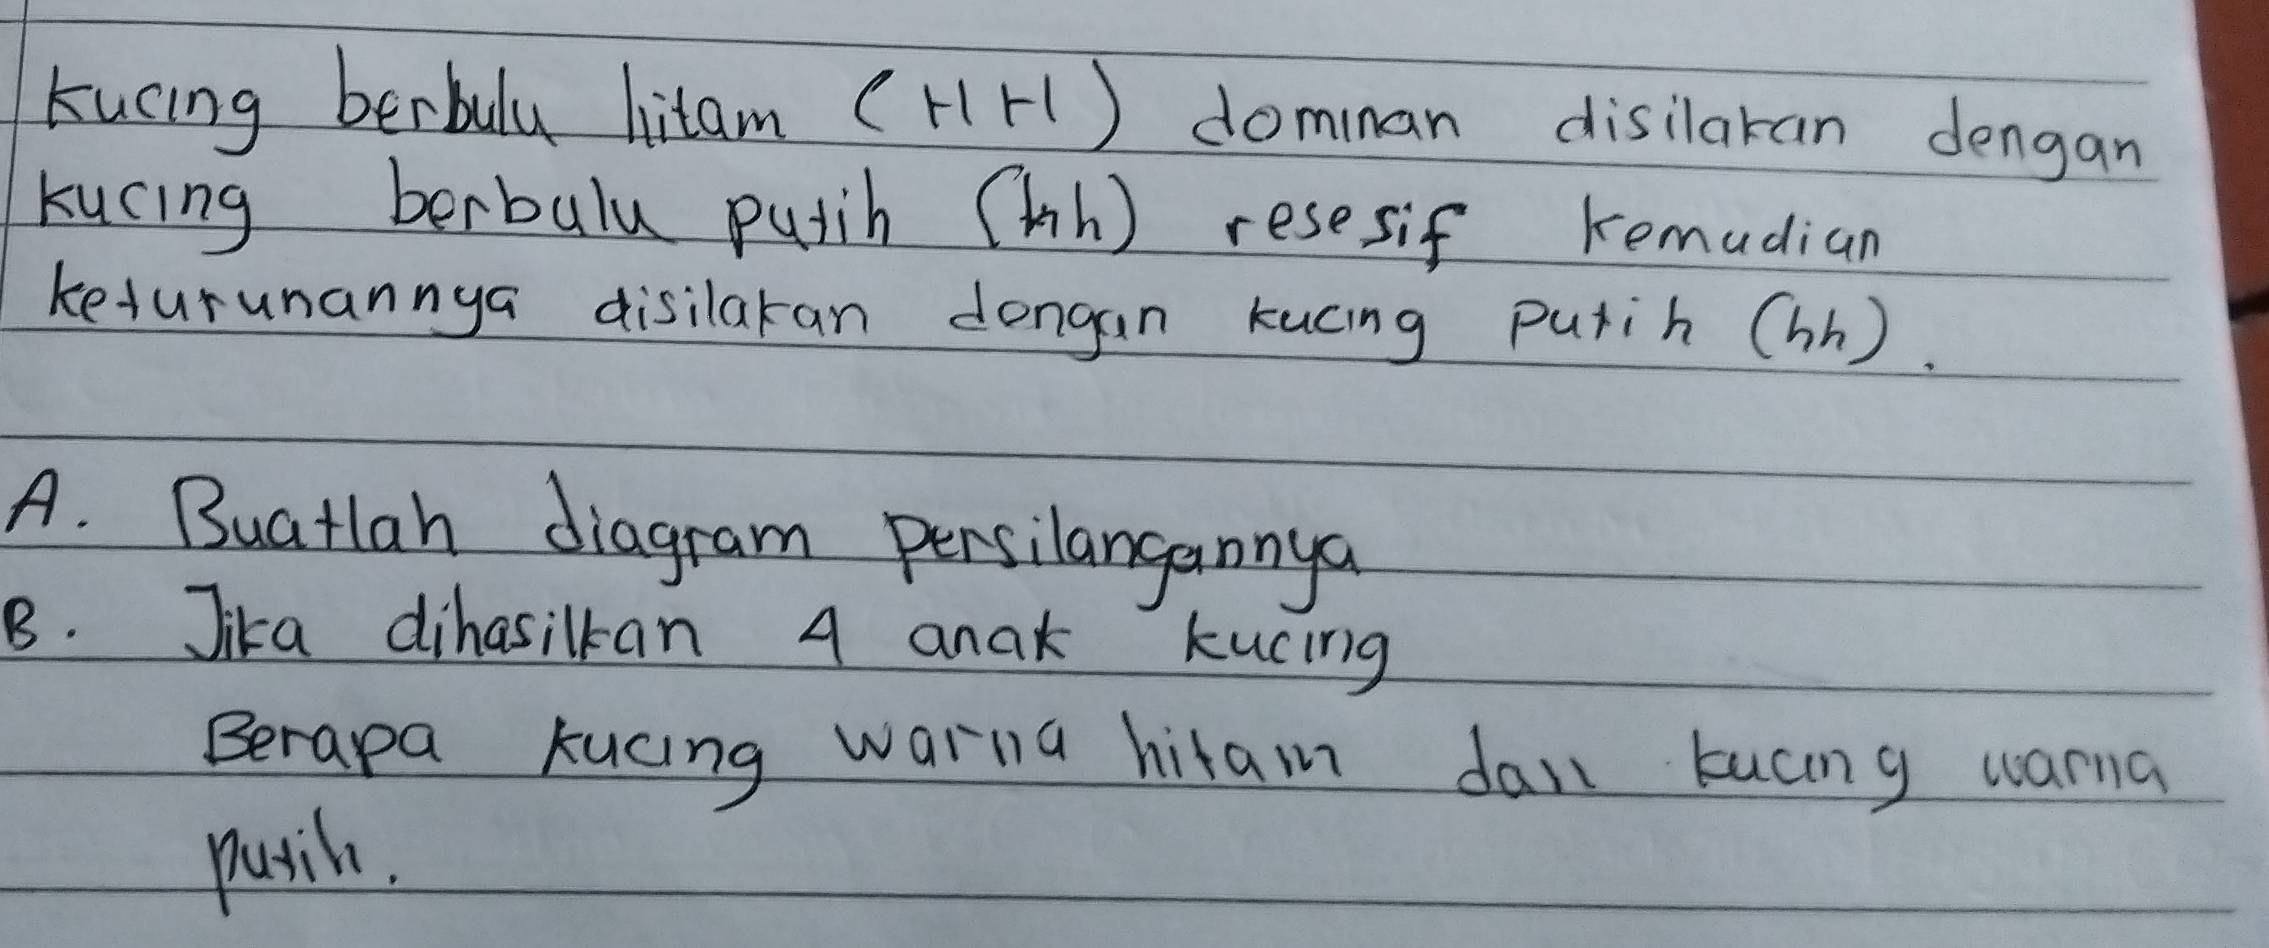 kucing berbulu hitam (HH) dominan disilakan dengan
kucing berbulu putih (hh) resesif kemudian
keturunannya disilakan dengan kucing putih (hh).
A. Buatlah diagram persilangannya
B. Jika dihasilkan 4 anak kucing
Berapa kucing warna hitam dan kucing warna
putih.